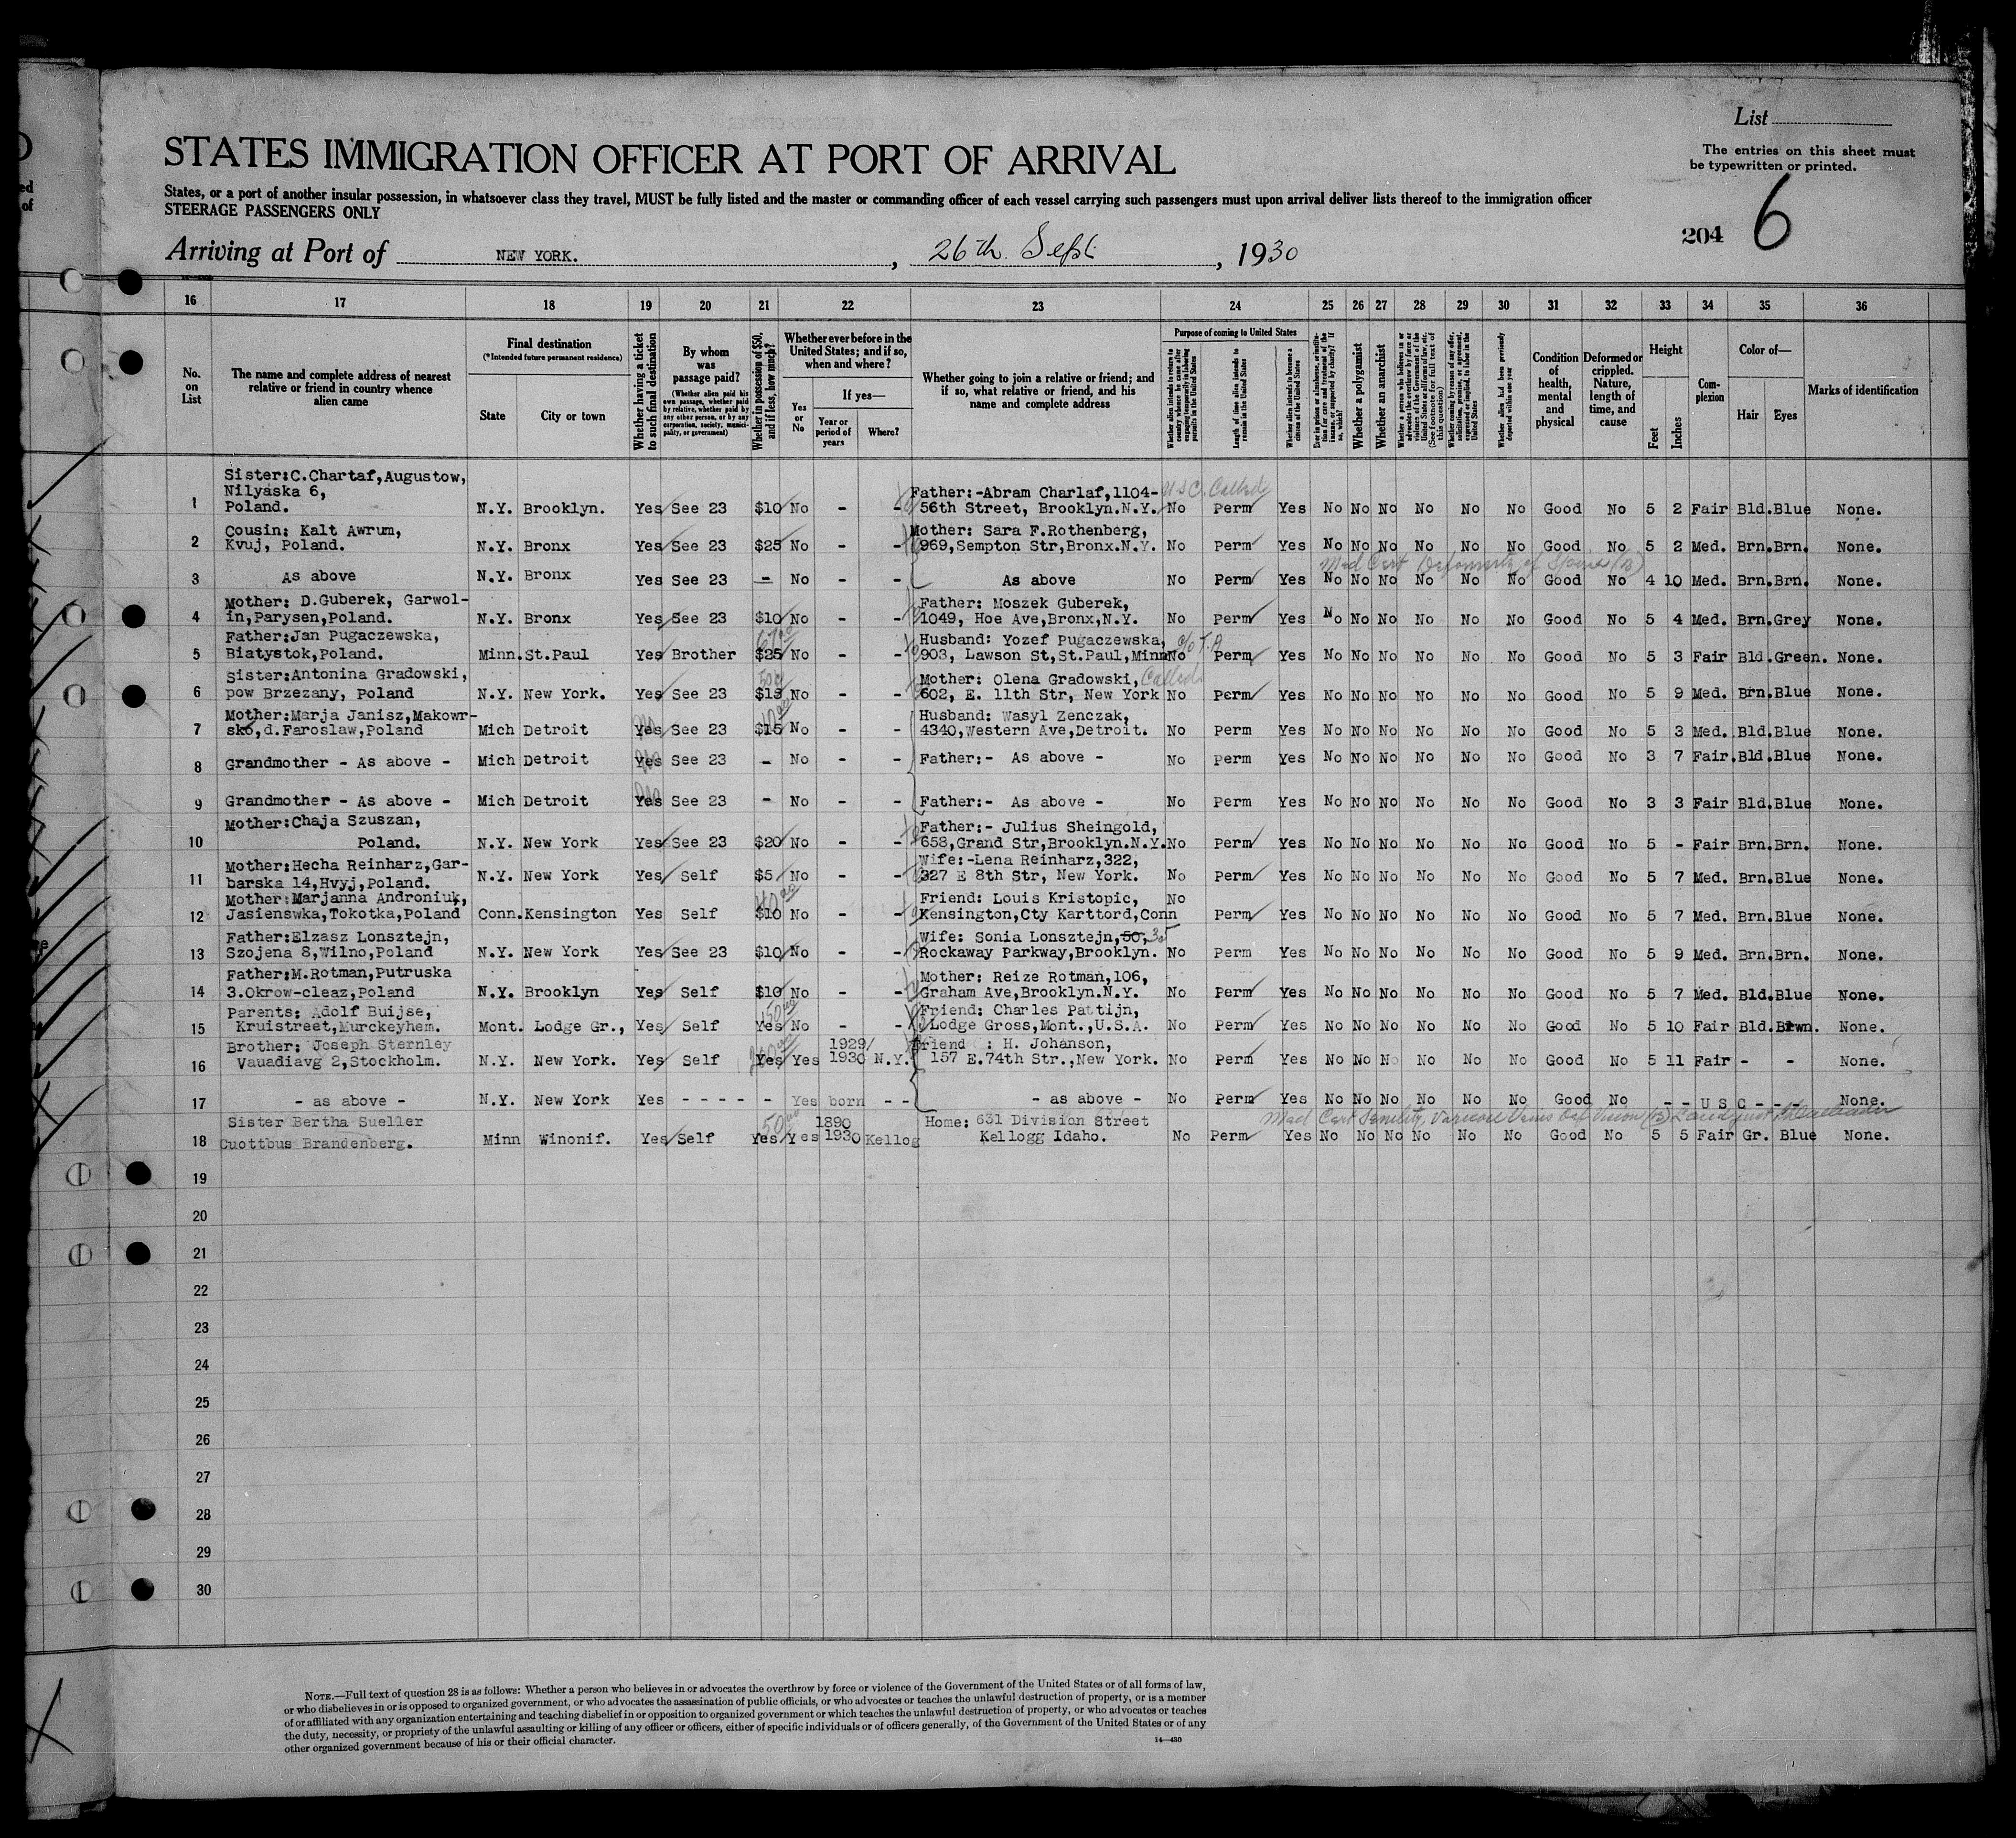 List
The entries on this sheet must
be typewritten or printed.
STATES IMMIGRATION OFFICER AT PORT OF ARRIVAL
States, or a port of another insular possession, in whatsoever class they travel, MUST be fully listed and the master or commanding officer of each vessel carrying such passengers must upon arrival deliver lists thereof to the immigration officer
STEERAGE PASSENGERS ONLY
204 6
Arriving at Port of NEW YORK. , 26th Sept , 1930
16 17 18 19 20 21 22 23 24 25 26 27 28 29 30 31 32 33 34 35 36
No. on List
The name and complete address of nearest relative or friend in country whence alien came
Final destination
(*Intended future permanent residence)
State
City or town
Whether having a ticket to such final destination
By whom was passage paid?
(Whether alien paid his own passage, whether paid by relative, whether paid by any other person, or by any corporation, society, municipality, or government)
Whether in possession of $50, and if less, how much?
Whether ever before in the United States; and if so, when and where?
Yes or No
If yes—
Year or period of years
Where?
Whether going to join a relative or friend; and if so, what relative or friend, and his name and complete address
Purpose of coming to United States
Length of time alien intends to remain in the United States
Whether alien intends to become a citizen of the United States
Whether a polygamist
Whether an anarchist
Condition of health, mental and physical
Deformed or crippled. Nature, length of time, and cause
Height
Feet
Inches
Complexion
Color of—
Hair
Eyes
Marks of identification
Sister:C.Chartaf,Augustow,
Nilyaska 6, Father:-Abram Charlaf,1104- USC. Called
1 Poland. N.Y. Brooklyn. Yes See 23 $10 No - - 56th Street, Brooklyn.N.Y. No Perm Yes No No No No No No Good No 5 2 Fair Bld. Blue None.
Cousin: Kalt Awrum, Mother: Sara F.Rothenberg,
2 Kvuj, Poland. N.Y. Bronx Yes See 23 $25 No - - 969,Sempton Str,Bronx.N.Y. No Perm Yes No No No No No No Good No 5 2 Med. Brn. Brn. None.
Med Cert Deformity of Spine (B)
3 As above N.Y. Bronx Yes See 23 - No - - As above No Perm Yes No No No No No No Good No 4 10 Med. Brn. Brn. None.
Mother: D.Guberek, Garwol- Father: Moszek Guberek,
4 in,Parysen,Poland. N.Y. Bronx Yes See 23 $10 No - - 1049, Hoe Ave,Bronx,N.Y. No Perm Yes No No No No No No Good No 5 4 Med. Brn. Grey None.
Father:Jan Pugaczewska, Husband: Yozef Pugaczewska,
5 Biatystok,Poland. Minn. St.Paul Yes Brother $25 No - - 903, Lawson St,St.Paul,Minn No Perm Yes No No No No No No Good No 5 3 Fair Bld. Green. None.
Sister:Antonina Gradowski, Mother: Olena Gradowski, Called
6 pow Brzezany, Poland N.Y. New York. Yes See 23 $13 No - - 602, E. 11th Str, New York No Perm Yes No No No No No No Good No 5 9 Med. Brn. Blue None.
Mother:Marja Janisz,Makowr- Husband: Wasyl Zenczak,
7 sko,d.Faroslaw,Poland Mich Detroit Yes See 23 $15 No - - 4340,Western Ave,Detroit. No Perm Yes No No No No No No Good No 5 3 Med. Bld. Blue None.
8 Grandmother - As above - Mich Detroit Yes See 23 - No - - Father:- As above - No Perm Yes No No No No No No Good No 3 7 Fair. Bld. Blue None.
9 Grandmother - As above - Mich Detroit Yes See 23 - No - - Father:- As above - No Perm Yes No No No No No No Good No 3 3 Fair Bld. Blue None.
Mother:Chaja Szuszan, Father:- Julius Sheingold,
10 Poland. N.Y. New York Yes See 23 $20 No - - 658,Grand Str,Brooklyn.N.Y. No Perm Yes No No No No No No Good No 5 - Fair Brn. Brn. None.
Mother:Hecha Reinharz,Gar- Wife:-Lena Reinharz,322,
11 barska 14,Hvyj,Poland. N.Y. New York Yes Self $5 No - - 327 E 8th Str, New York. No Perm Yes No No No No No No Good No 5 7 Med. Brn. Blue None.
Mother:Marjanna Androniuk, Friend: Louis Kristopic, No
12 Jasienswka,Tokotka,Poland Conn. Kensington Yes Self $10 No - - Kensington,Cty Karttord,Conn Perm Yes No No No No No No Good No 5 7 Med. Brn. Blue None.
Father:Elzasz Lonsztejn, Wife: Sonia Lonsztejn,50, 35
13 Szojena 8,Wilno,Poland N.Y. New York Yes See 23 $10 No - - Rockaway Parkway,Brooklyn. No Perm Yes No No No No No No Good No 5 9 Med. Brn. Brn. None.
Father:M.Rotman,Putruska Mother: Reize Rotman,106,
14 3.Okrow-cleaz,Poland N.Y. Brooklyn Yes Self $10 No - - Graham Ave,Brooklyn.N.Y. No Perm Yes No No No No No No Good No 5 7 Med. Bld. Blue None.
Parents: Adolf Buijse, Friend: Charles Pattijn,
15 Kruistreet,Murckeyhem. Mont. Lodge Gr., Yes Self Yes No - - Lodge Gross,Mont.,U.S.A. No Perm Yes No No No No No No Good No 5 10 Fair Bld. Brwn. None.
Brother: Joseph Sternley 1929/ Friend : H. Johanson,
16 Vauadiavg 2,Stockholm. N.Y. New York. Yes Self Yes Yes 1930 N.Y. 157 E.74th Str.,New York. No Perm Yes No No No No No No Good No 5 11 Fair - - None.
17 - as above - N.Y. New York Yes - - - - - Yes born - - - as above - No Perm Yes No No No No No No Good No - - U S C - - None.
Sister Bertha Sueller 50 1890 Home: 631 Division Street Med Cert Senility, Varicose Veins Def Vision (B)
18 Cuottbus Brandenberg. Minn Winonif. Yes Self Yes Yes 1930 Kellog Kellogg Idaho. No Perm Yes No No No No No No Good No 5 5 Fair Gr. Blue None.
19
20
21
22
23
24
25
26
27
28
29
30
NOTE.—Full text of question 28 is as follows: Whether a person who believes in or advocates the overthrow by force or violence of the Government of the United States or of all forms of law,
or who disbelieves in or is opposed to organized government, or who advocates the assassination of public officials, or who advocates or teaches the unlawful destruction of property, or is a member
of or affiliated with any organization entertaining and teaching disbelief in or opposition to organized government or which teaches the unlawful destruction of property, or who advocates or teaches
the duty, necessity, or propriety of the unlawful assaulting or killing of any officer or officers, either of specific individuals or of officers generally, of the Government of the United States or of any
other organized government because of his or their official character.
14—430